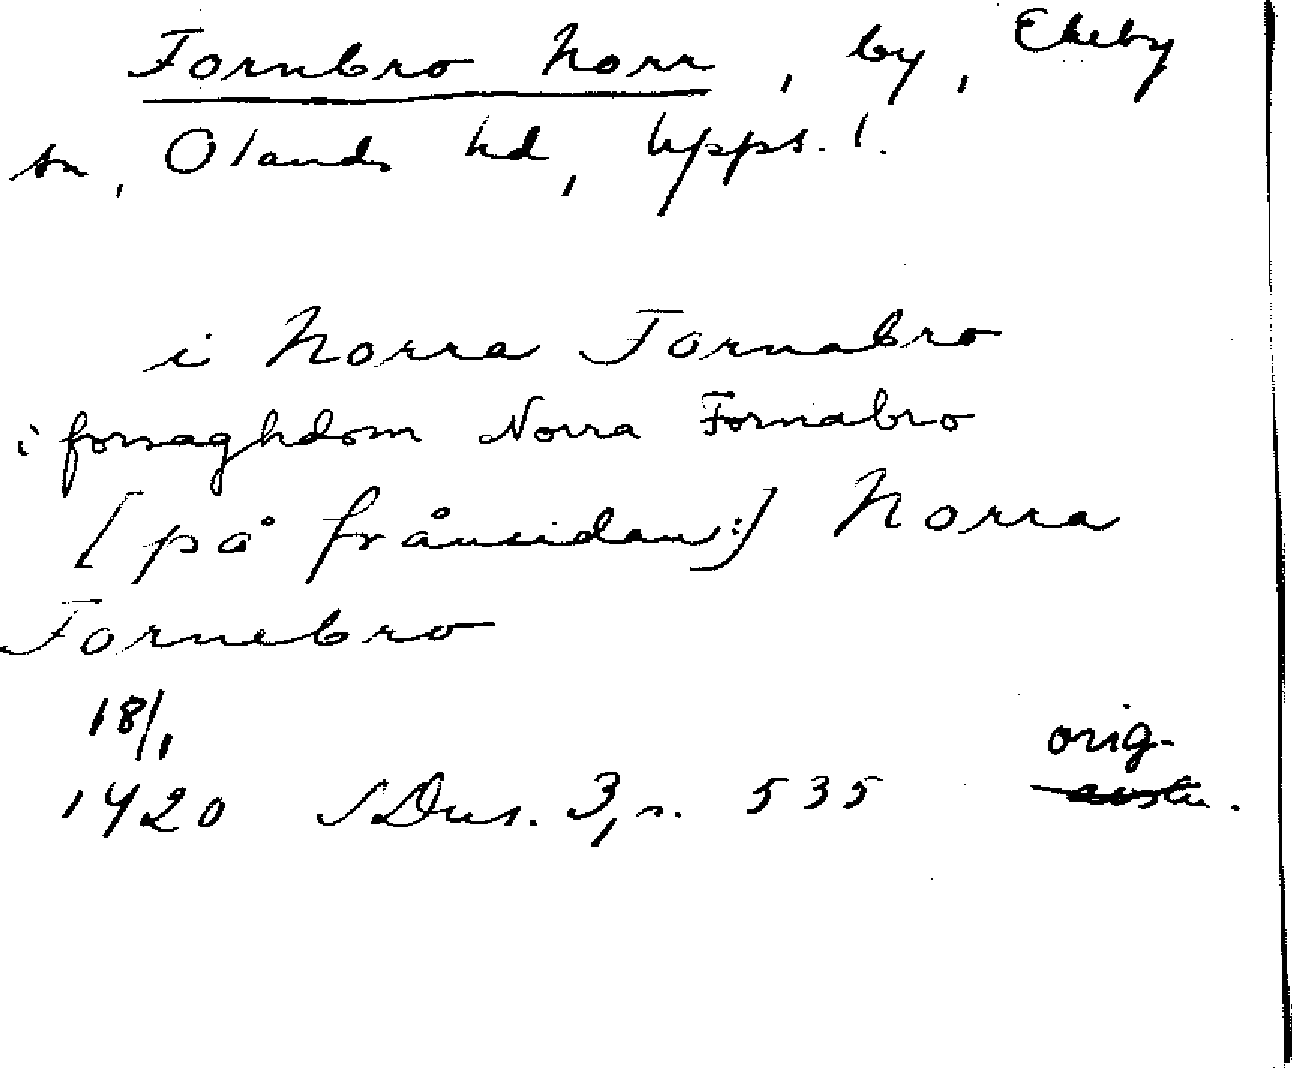 Fornbro Norr, by, Ekeby
sn, Olands hd, Upps. l.
i Norra Fornabro
i forsaghdom Norra Fornabro
[på frånsidan:] Norra
Fornebro
18/1
orig.
1420 SDns. 3, s. 535 avskr.